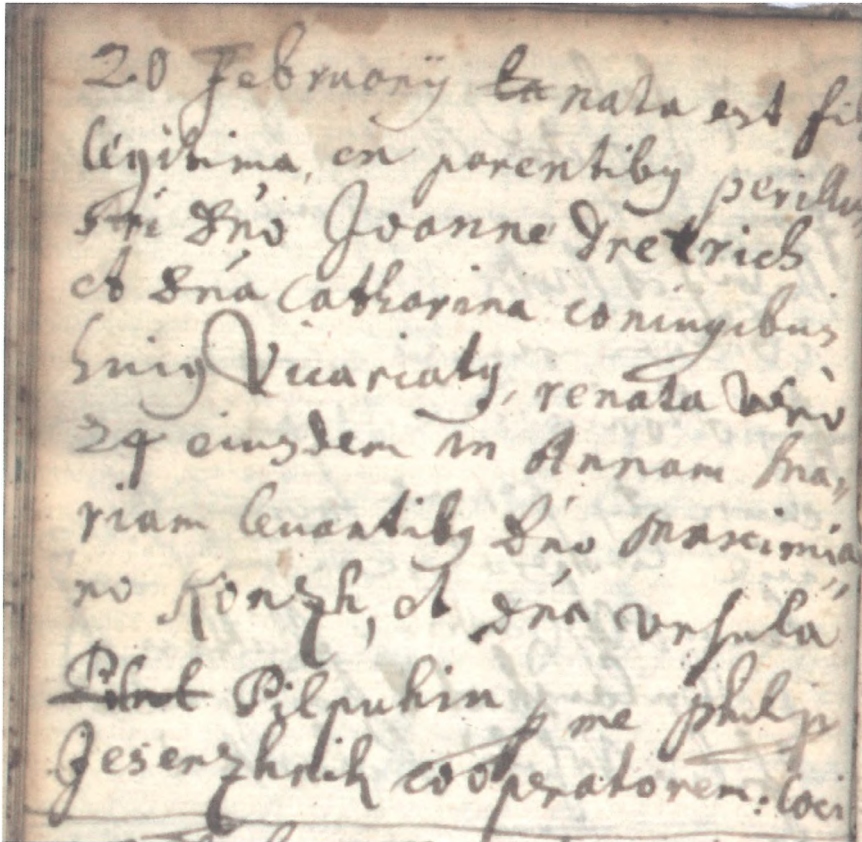 20 Februarÿ nata est fi
legitima, ex parentiby perillu
stri Dno Joanne Dietrich
et Dna Catharina coniugibus
huiy Vicariaty, renata vero
24 eiusdem in Annam Ma,,
riam levantiby Dno Maximia
no Konzh, et Dna Ursula
Pilpuhin p me philip
Jeserzhnik cooperatorem: loci